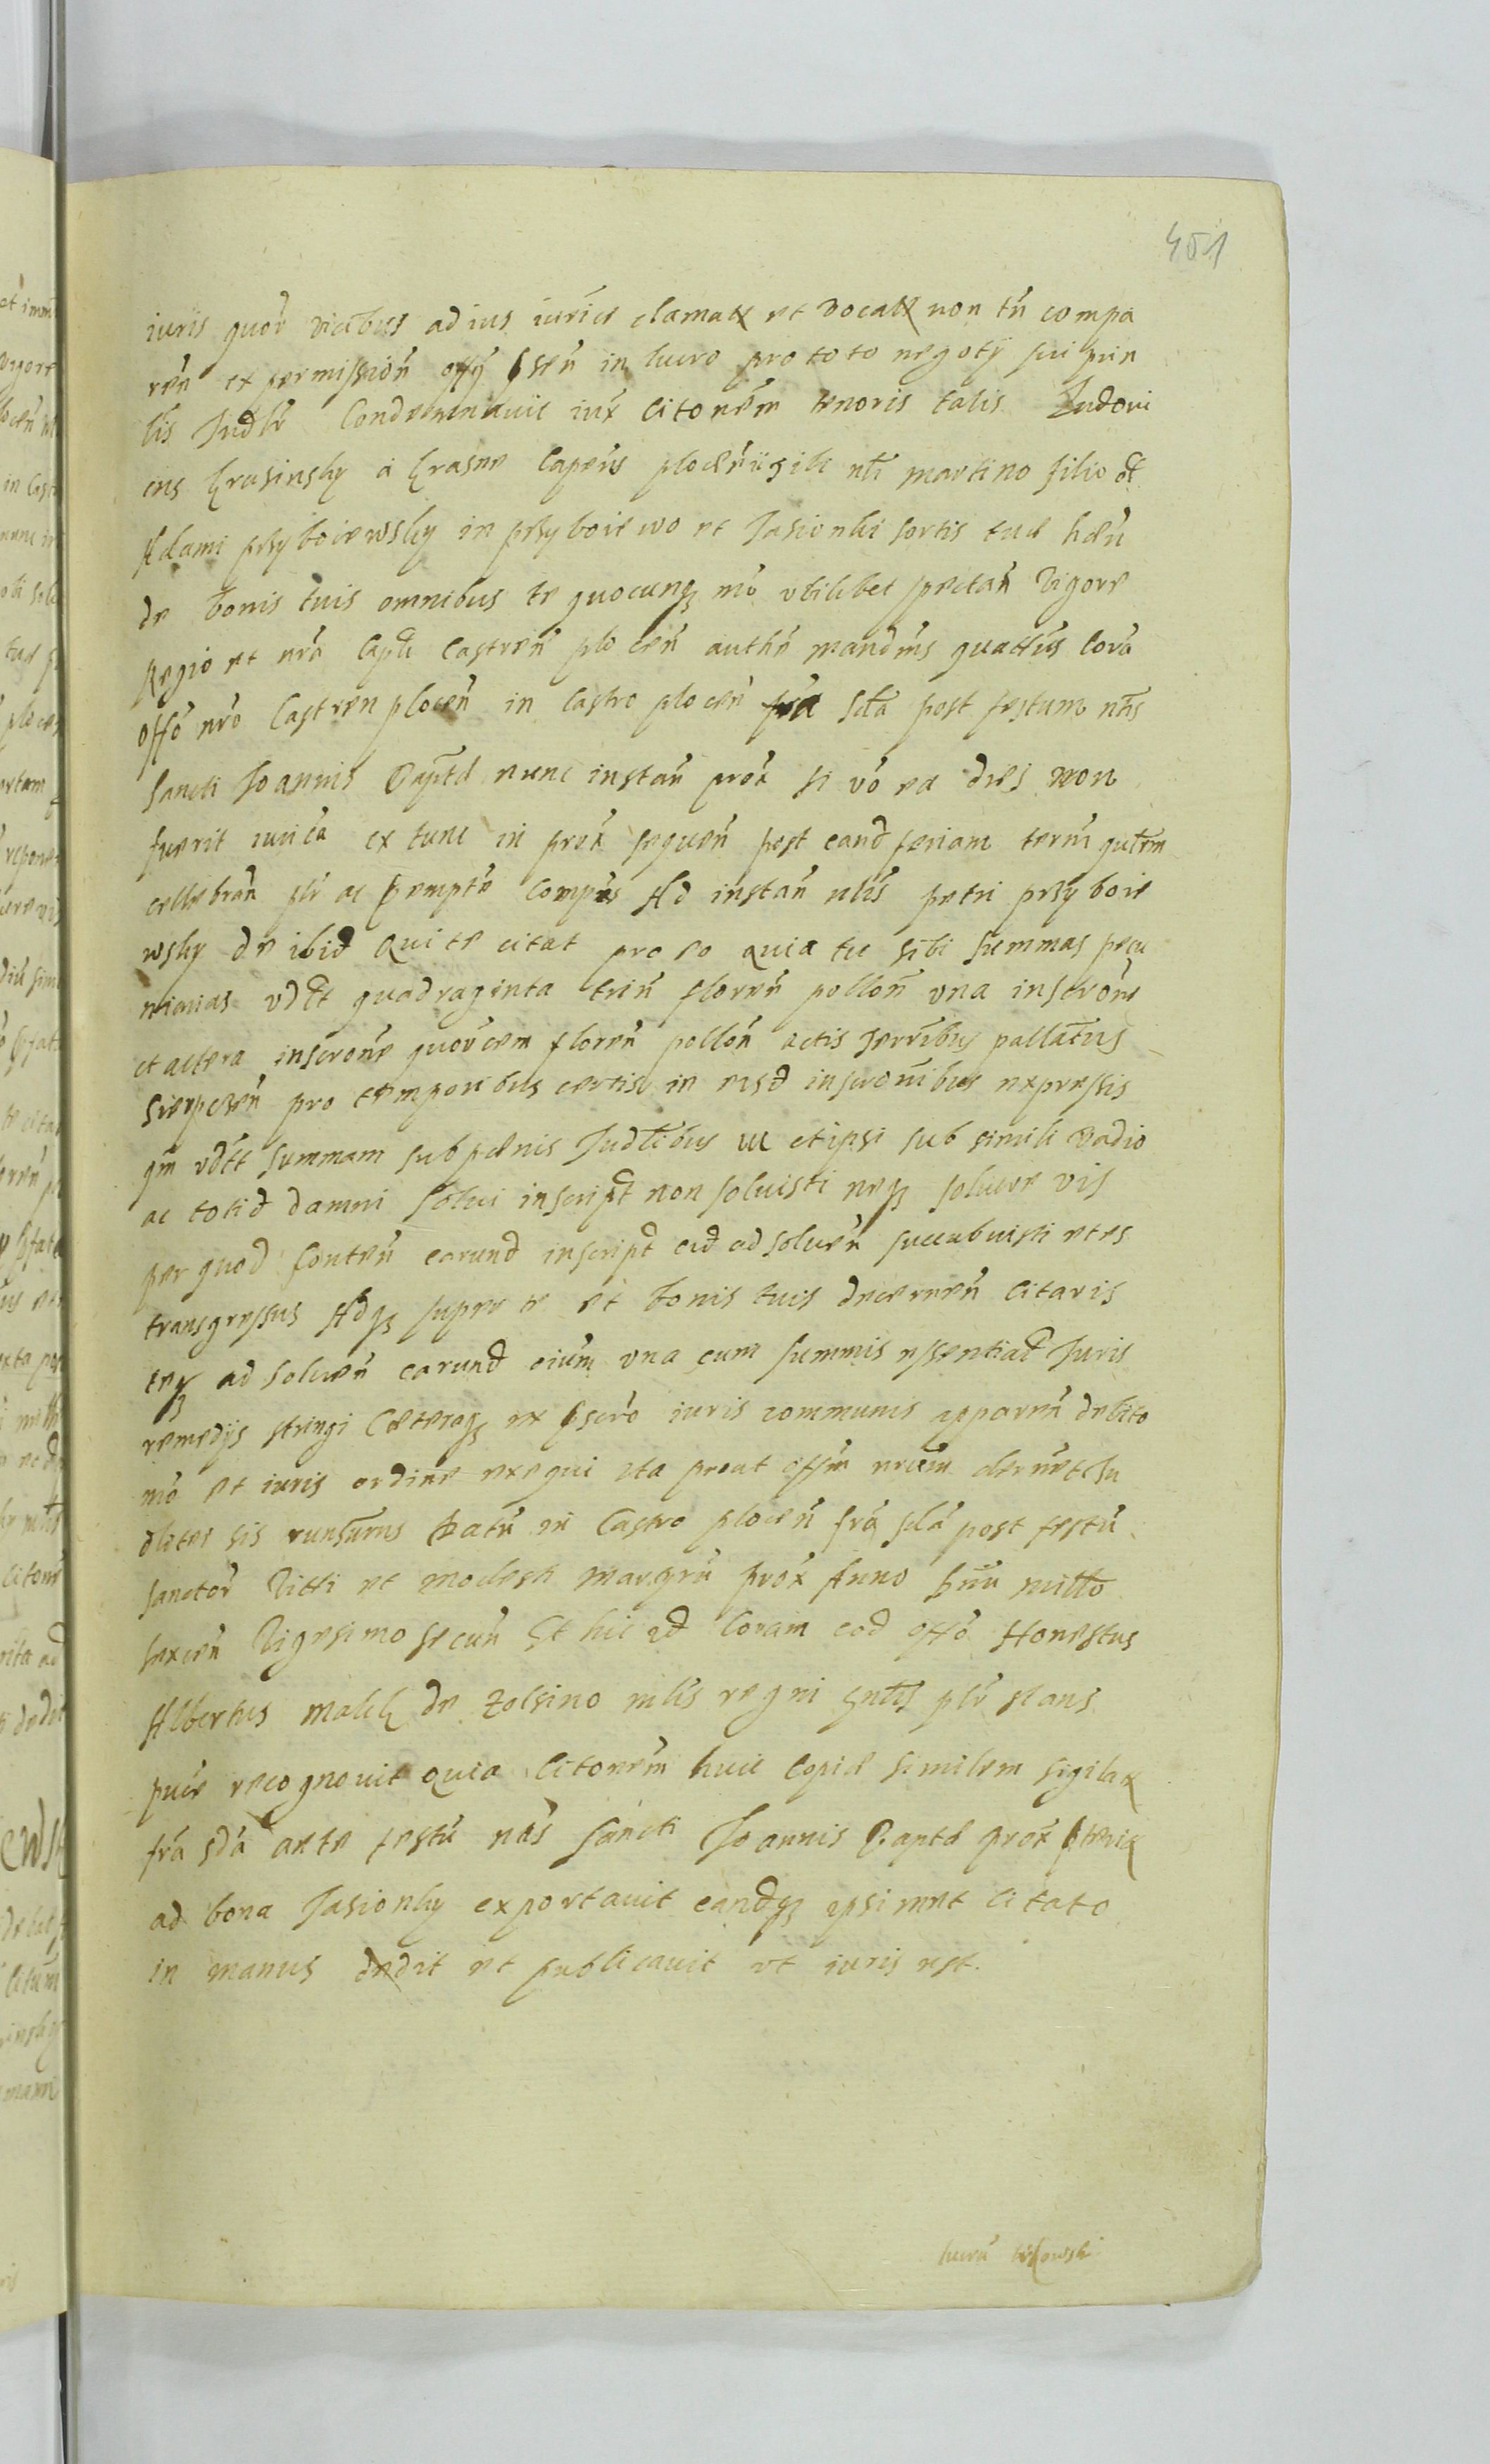 451
iuris quor vicibus ad ius iurice clamat et vocat non tn compa
ren ex permission offy psen in lucro pro toto negoty sui prin
lis Judlr Condemnavit iux Citonem tenoris talis Ludovi
cus Krasinsky a Krasne Capneus plocen tibi nli martino filio ol
Adami przyboiewsky in przyboiewo et Jasionki sortis tuæ hæn
de bonis tuis omnibus te quocunq mo utilibet spectan Vigore
Regio et nra Captli Castren plocen authe mandms quattus Cora
offo nro Castren plocen in Castro plocen fria scda post festum ntis
Sancti Joannis Baptæ nunc instan prox si vo ea dies non
fuerit iurica ex tunc in prox sequen post eand feriam termi qutem
cellebran plr ac pempte Compas Ad instan nlis petri przyboie
wsky de ibid qui te citat pro eo quia tu sibi summas pecu
niarias vdlt quadraginta trin floren pollon una inscrone
et altera inscrone quorcem floren pollon actis terribus pallatus
Sierpcen pro temporibus certis in eisd inscronibus expressis
qm vdlt summam sub pænis Judlibus ut et ipsi sub simili vadio
ac totid damni Solvi inscript non solvisti neq solvere vis
per quod Conten earund inscript eid ad solven succubuisti et es
transgressus Adq super te et bonis tuis decernen Citaris
teq ad solven earund oium una cum summis essentiad Juris
remedys stringi Cæteraq ex pscro iuris communis apparen debito
mo et iuris ordine exequi ita prout offm nrum decrnet Ju
dlater sis runsurus Datu in Castro plocen fra scda post festu
sanctor Vitti et modesti margru prox Anno Dni millo
sexcen Vigesimo secun Et hic id Coram eod offo Honestus
Albertus malek de Zolsino mlis regni gntlis plr stans
puce recognovit quia Citonem huic Copiæ similem sigilat
fra sda ante festu ntis sancti Joannis Baptæ prox pterit
ad bona Jasionky exportavit eandq ipsimet citato
in manus dedit et publicavit ut iuris est.
lucru